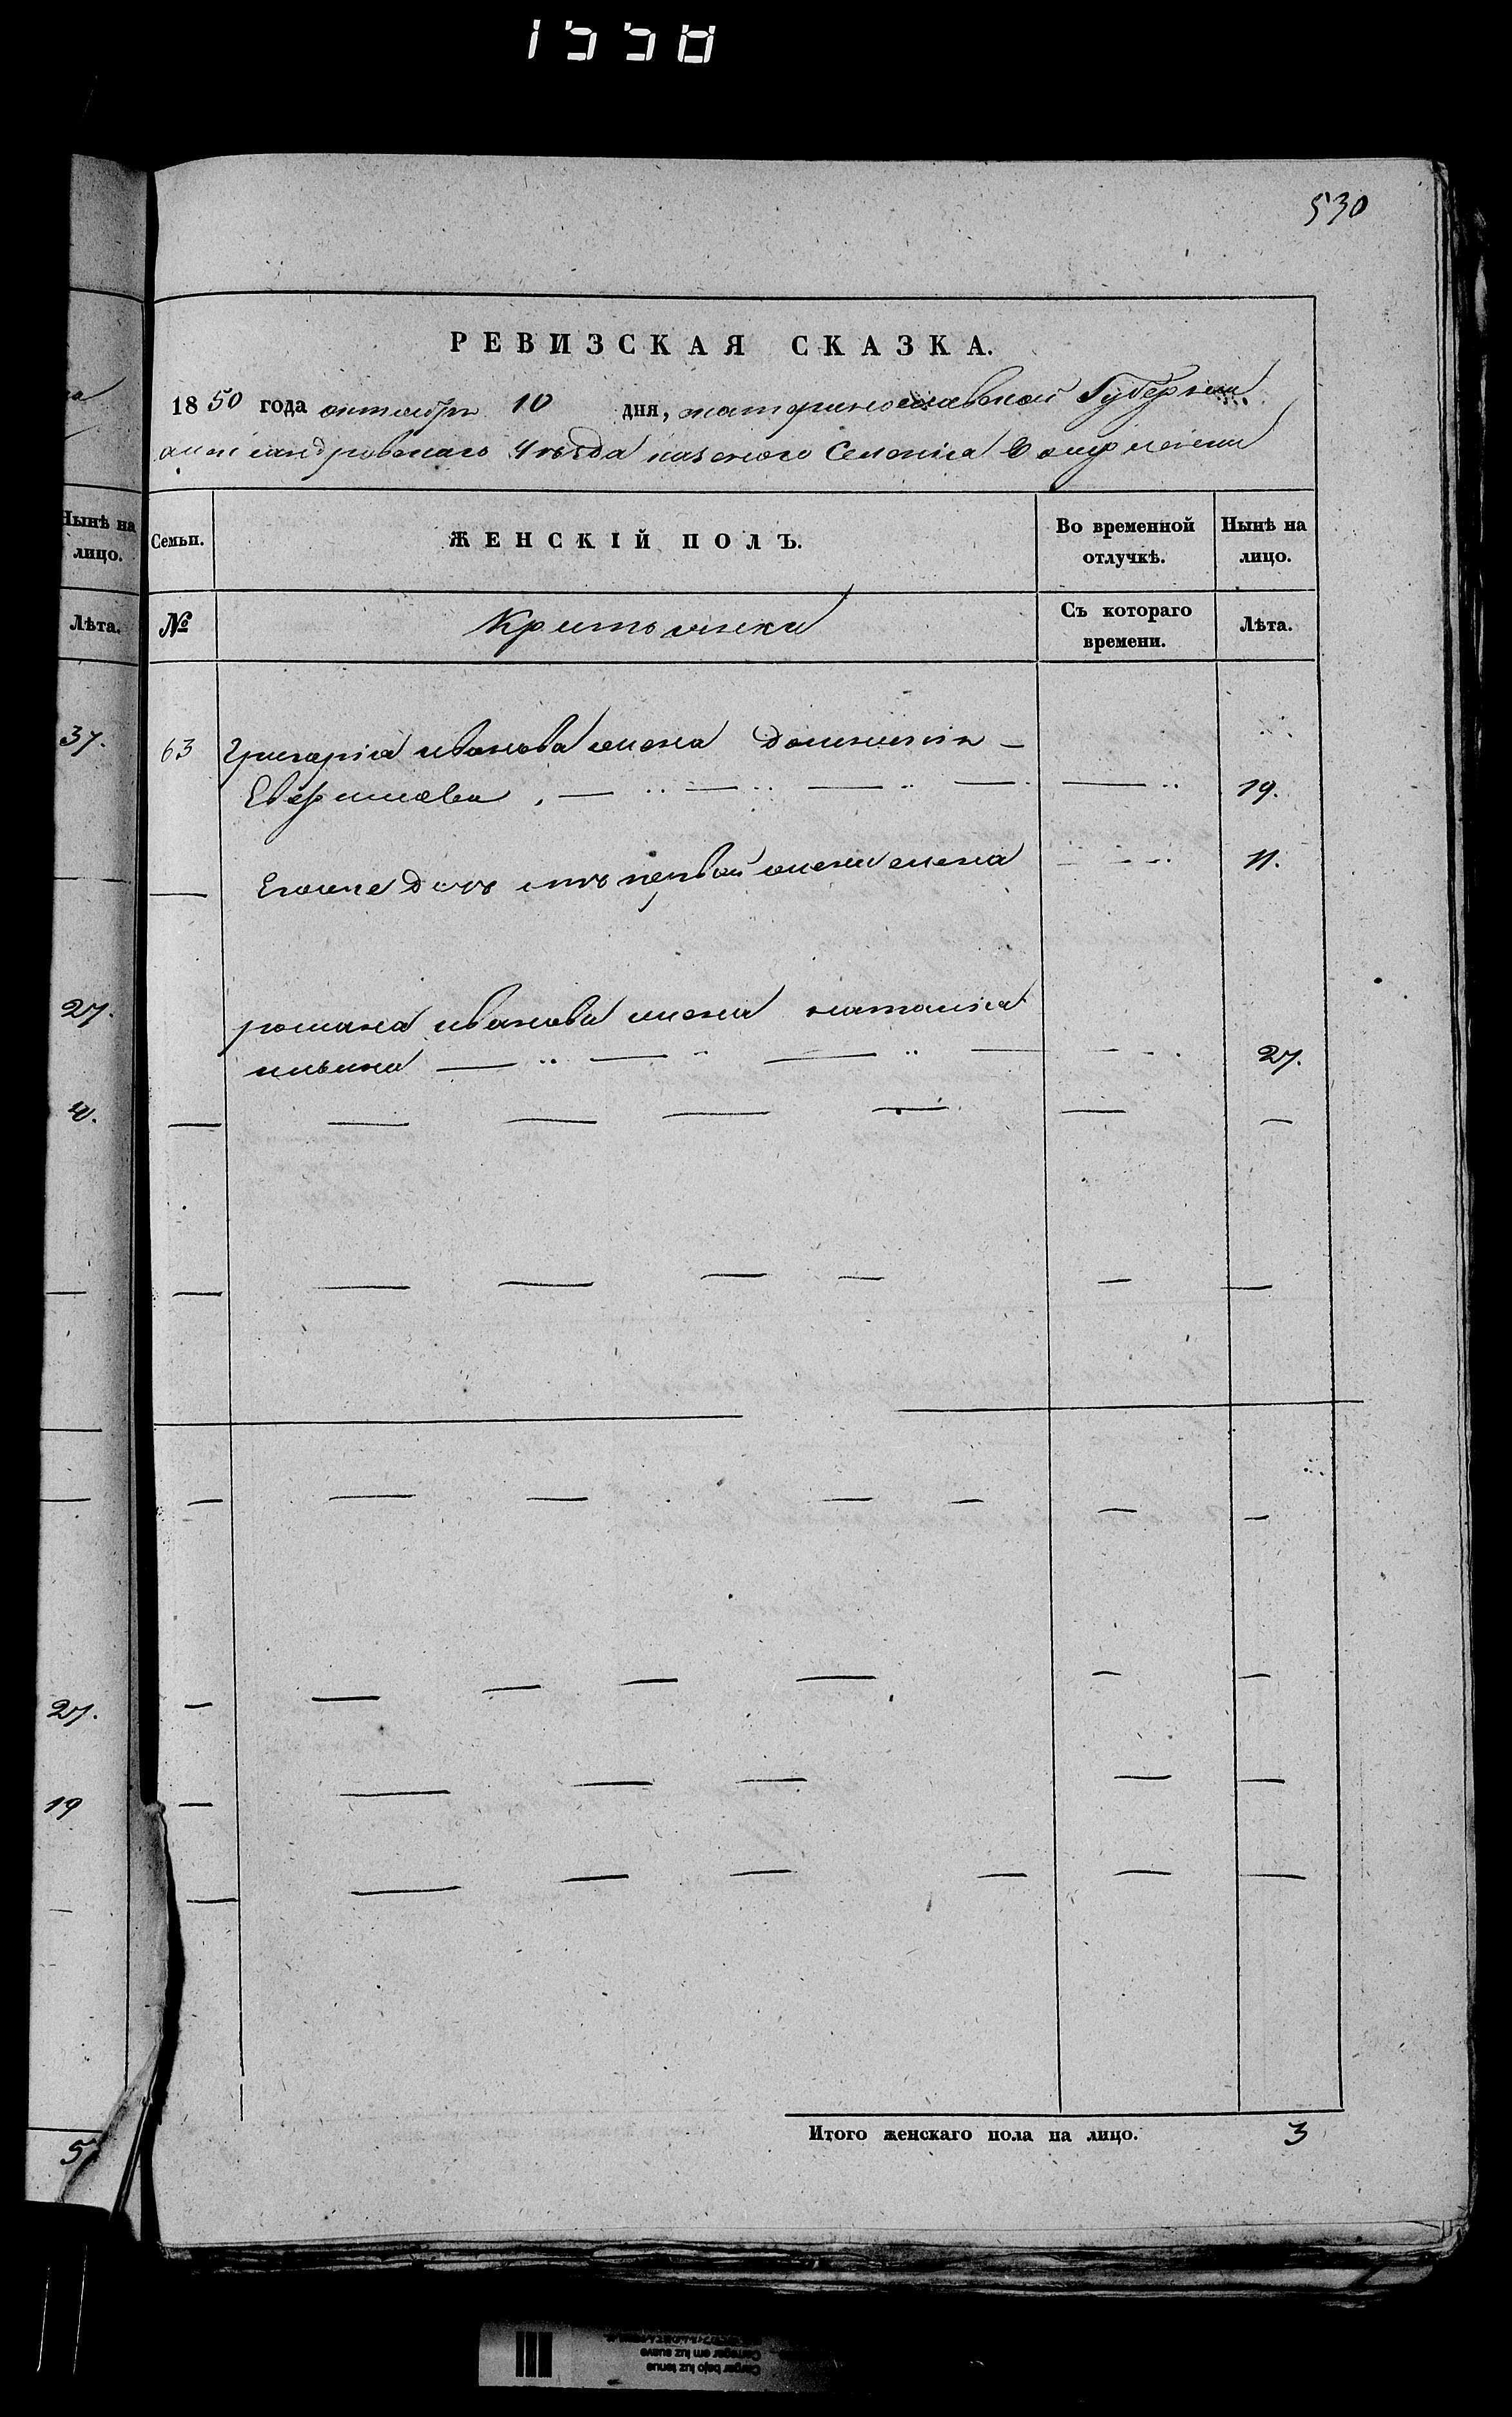 1558
530
РЕВИЗСКАЯ СКАЗКА.
1850 года октября 10 дня, екатеринославской Губернии
александровскаго Уезда казеного Селения
Семьи. ЖЕНСКІЙ ПОЛЪ. Во временной отлучкѣ. Нынѣ на лицо.
№ Съ котораго времени. Лѣта.
63 григория иванова жена домникия
19.
Егоже дочь отъ первой жены елена 11.
романа иванова жена наталия
ильина 27.
Итого женскаго пола на лицо. 3
Нынѣ на
лицо.
Лѣта.
37.
27.
27.
19
5